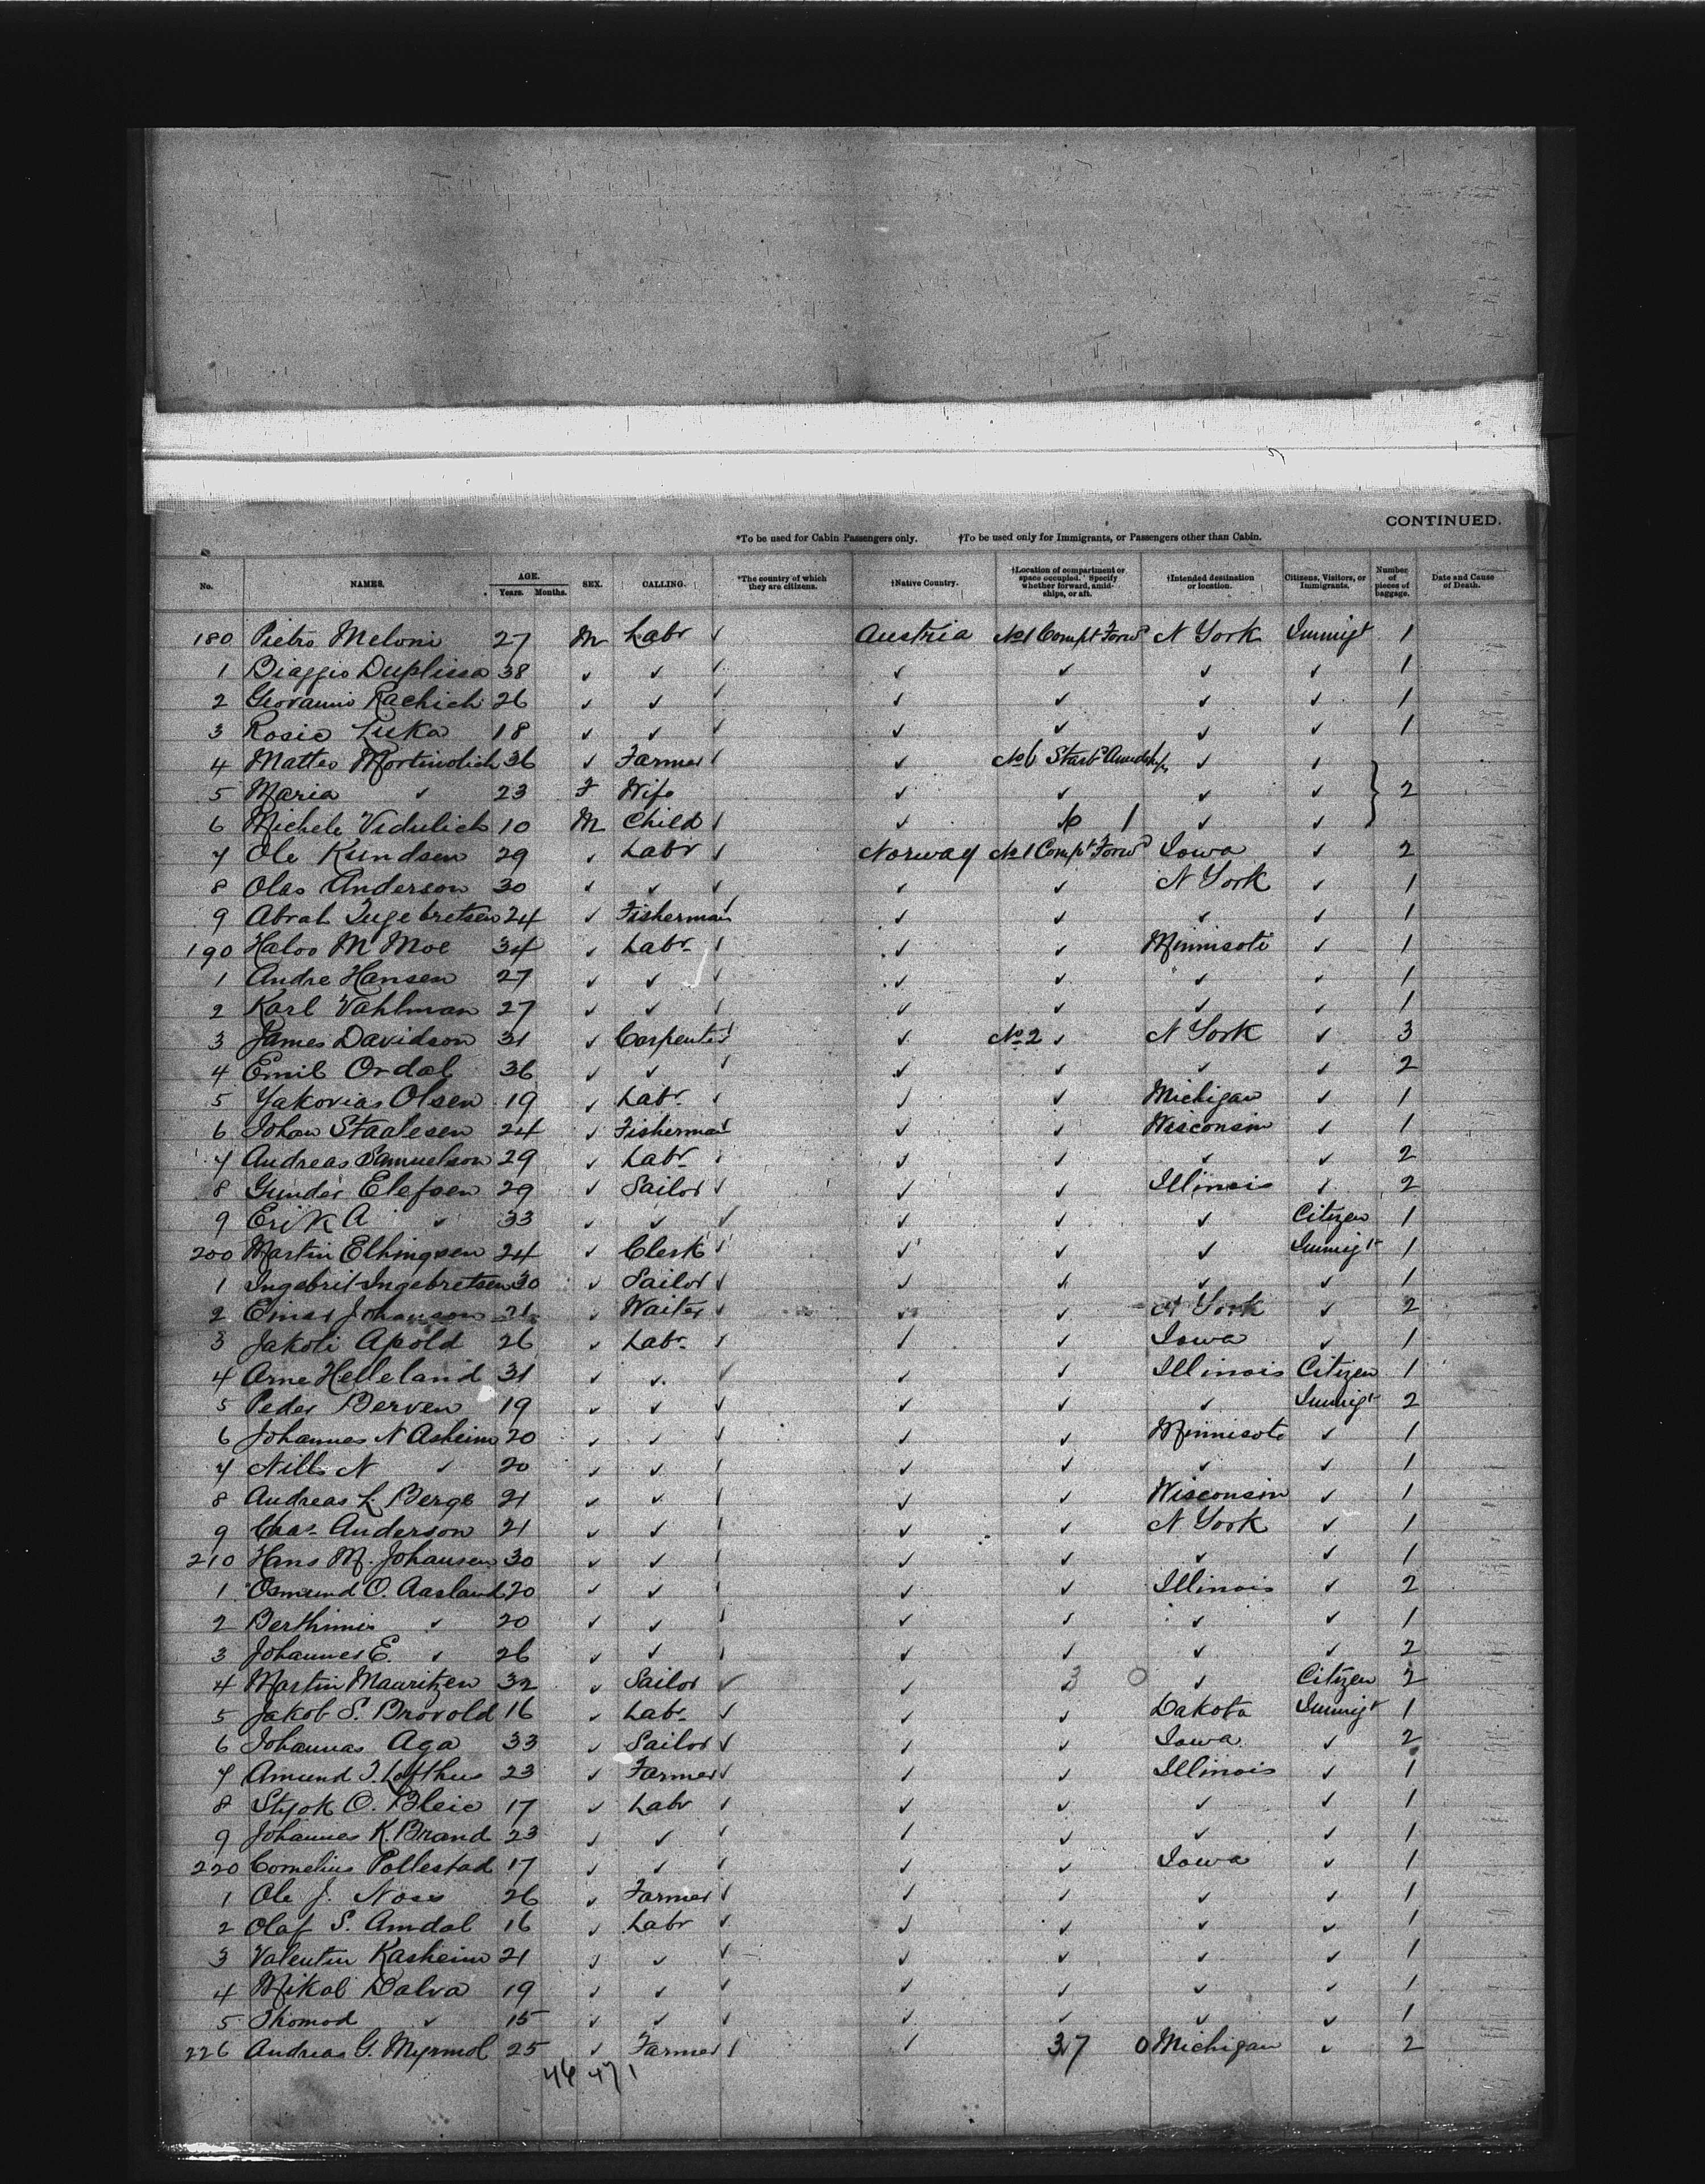 CONTINUED.
*To be used for Cabin Passengers only. †To be used only for Immigrants, or Passengers other than Cabin.
No. NAMES. AGE. Years. Months. SEX. CALLING. *The country of which they are citizens. †Native Country. †Location of compartment or space occupied. Specify whether forward, amidships, or aft. †Intended destination or location. Citizens, Visitors, or Immigrants. Number of pieces of baggage. Date and Cause of Death.
180 Pietro Meloni 27 M Labr ✓ Austria No1 Compt Forwd N York Immigt 1
1 Biaggio Duplissa 38 ✓ ✓ ✓ ✓ ✓ ✓ ✓ 1
2 Giovanni Rachich 26 ✓ ✓ ✓ ✓ ✓ ✓ ✓ 1
3 Rosie Luka 18 ✓ ✓ ✓ ✓ ✓ ✓ ✓ 1
4 Matteo Martinolich 36 ✓ Farmer ✓ ✓ No6 Starbd Amidships ✓ ✓
5 Maria ✓ 23 F Wife ✓ ✓ ✓ ✓ 2
6 Michele Vidulich 10 M Child ✓ ✓ 1 ✓ ✓
7 Ole Kundsen 29 ✓ Labr ✓ Norway No1 Compt Forwd Iowa ✓ 2
8 Olas Anderson 30 ✓ ✓ ✓ ✓ ✓ N York ✓ 1
9 Abrah Ingebretsen 24 ✓ Fisherman ✓ ✓ ✓ ✓ 1
190 Halvo M Moe 34 ✓ Labr ✓ ✓ ✓ Minnisoti ✓ 1
1 Andre Hansen 27 ✓ ✓ ✓ ✓ ✓ ✓ ✓ 1
2 Karl Vahlman 27 ✓ ✓ ✓ ✓ ✓ ✓ ✓ 1
3 James Davidson 31 ✓ Carpenter ✓ ✓ No 2 ✓ N York ✓ 3
4 Emil Ordal 36 ✓ ✓ ✓ ✓ ✓ ✓ ✓ 2
5 Yakovias Olsen 19 ✓ Labr ✓ ✓ ✓ Michigan ✓ 1
6 Johan Staalesen 24 ✓ Fisherman ✓ ✓ Wisconsin ✓ 1
7 Andreas Samuelson 29 ✓ Labr ✓ ✓ ✓ ✓ ✓ 2
8 Gunder Elefsen 29 ✓ Sailor ✓ ✓ ✓ Illinois ✓ 2
9 Erik A ✓ 33 ✓ ✓ ✓ ✓ ✓ ✓ Citizen 1
200 Martin Ellingsen 24 ✓ Clerk ✓ ✓ ✓ ✓ Immigt 1
1 Ingebrit Ingebretsen 30 ✓ Sailor ✓ ✓ ✓ ✓ ✓ 1
2 Einar Johanson 21 ✓ Waiter ✓ ✓ ✓ N York ✓ 2
3 Jakoti Apold 26 ✓ Labr ✓ ✓ ✓ Iowa ✓ 1
4 Arne Helleland 31 ✓ ✓ ✓ ✓ ✓ Illinois Citizen 1
5 Peder Berven 19 ✓ ✓ ✓ ✓ ✓ ✓ Immigt 2
6 Johannes N Asheim 20 ✓ ✓ ✓ ✓ ✓ Minnisota ✓ 1
7 Nills N ✓ 20 ✓ ✓ ✓ ✓ ✓ ✓ ✓ 1
8 Andreas L. Berge 21 ✓ ✓ ✓ ✓ ✓ Wisconsin ✓ 1
9 Chas. Anderson 21 ✓ ✓ ✓ ✓ ✓ N York ✓ 1
210 Hans M. Johansen 30 ✓ ✓ ✓ ✓ ✓ ✓ ✓ 1
1 Osmund O. Aasland 20 ✓ ✓ ✓ ✓ ✓ Illinois ✓ 2
2 Berthinis ✓ 20 ✓ ✓ ✓ ✓ ✓ ✓ ✓ 1
3 Johannes E. ✓ 26 ✓ ✓ ✓ ✓ ✓ ✓ ✓ 2
4 Martin Mauritzen 32 ✓ Sailor ✓ ✓ 3 0 ✓ Citizen 2
5 Jakob S. Brovold 16 ✓ Labr ✓ ✓ ✓ Dakota Immigt 1
6 Johannas Aga 33 ✓ Sailor ✓ ✓ ✓ Iowa ✓ 2
7 Amund I. Lofthus 23 ✓ Farmer ✓ ✓ ✓ Illinois ✓ 1
8 Styok O. Bleie 17 ✓ Labr ✓ ✓ ✓ ✓ ✓ 1
9 Johannes K. Brand 23 ✓ ✓ ✓ ✓ ✓ ✓ ✓ 1
220 Cornelius Pollestad 17 ✓ ✓ ✓ ✓ ✓ Iowa ✓ 1
1 Ole J. Noss 26 ✓ Farmer ✓ ✓ ✓ ✓ ✓ 1
2 Olaf S. Amdal 16 ✓ Labr ✓ ✓ ✓ ✓ ✓ 1
3 Valentin Kasheim 21 ✓ ✓ ✓ ✓ ✓ ✓ ✓ 1
4 Mikal Dalva 19 ✓ ✓ ✓ ✓ ✓ ✓ ✓ 1
5 Thomod ✓ 15 ✓ ✓ ✓ ✓ ✓ ✓ ✓ 1
226 Andreas G. Myrmol 25 ✓ Farmer ✓ ✓ 37 0 Michigan ✓ 2
46 47 1